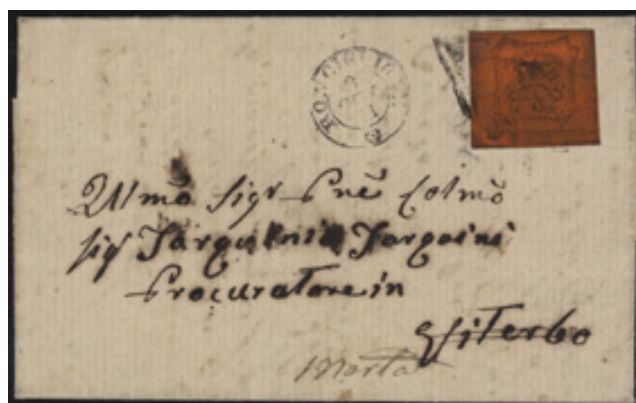 RONCIGLIONE
Illmo Sigr Pne Colmo
Sigr Tarquinio Tarquini
Procuratore in
Viterbo
Marta